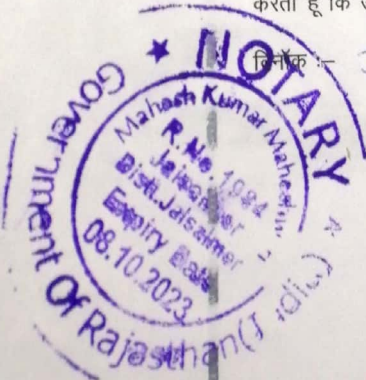 करता हूँ कि
दिनाँक :–
NOTARY
Government Of Rajasthan
Mahesh Kumar
R.No. 1984
Jaisalmer
Distt.Jaisalmer
Expiry Date
08.10.2023